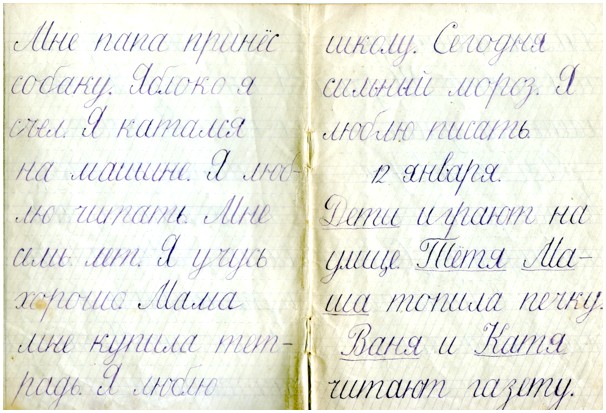 Мне папа принёс
собаку. Яблоко я
счел. Я катался
на машине. Я люб-
лю читать. Мне
семь лет. Я учусь
хорошо. Мама
мне купила тет-
радь. Я люблю
школу. Сегодня
сильный мороз. Я
люблю писать.
12 января.
Дети играют на
улице. Тётя Ма-
ша топила печку.
Ваня и Катя
читают газету.